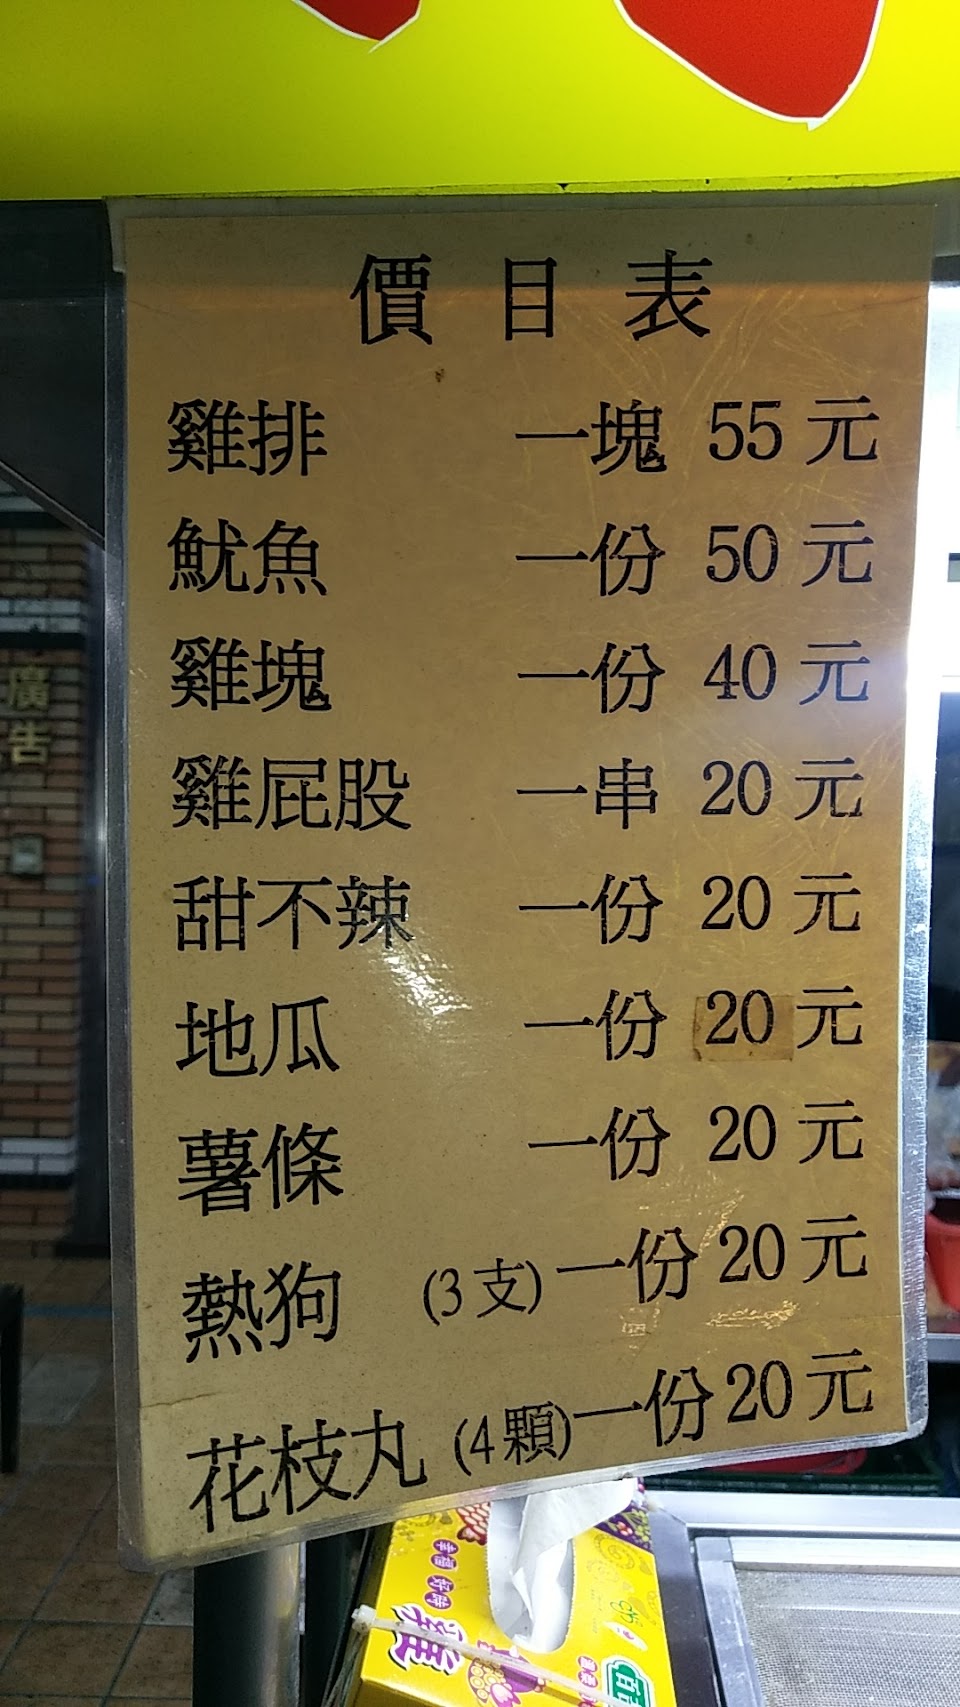 價目表
雞排 一塊 55元
魷魚 一份 50元
雞塊 一份 40元
雞屁股 一串 20元
甜不辣 一份 20元
地瓜 一份 20元
薯條 一份 20元
熱狗 (3支) 一份 20元
花枝丸 (4顆) 一份 20元
廣告